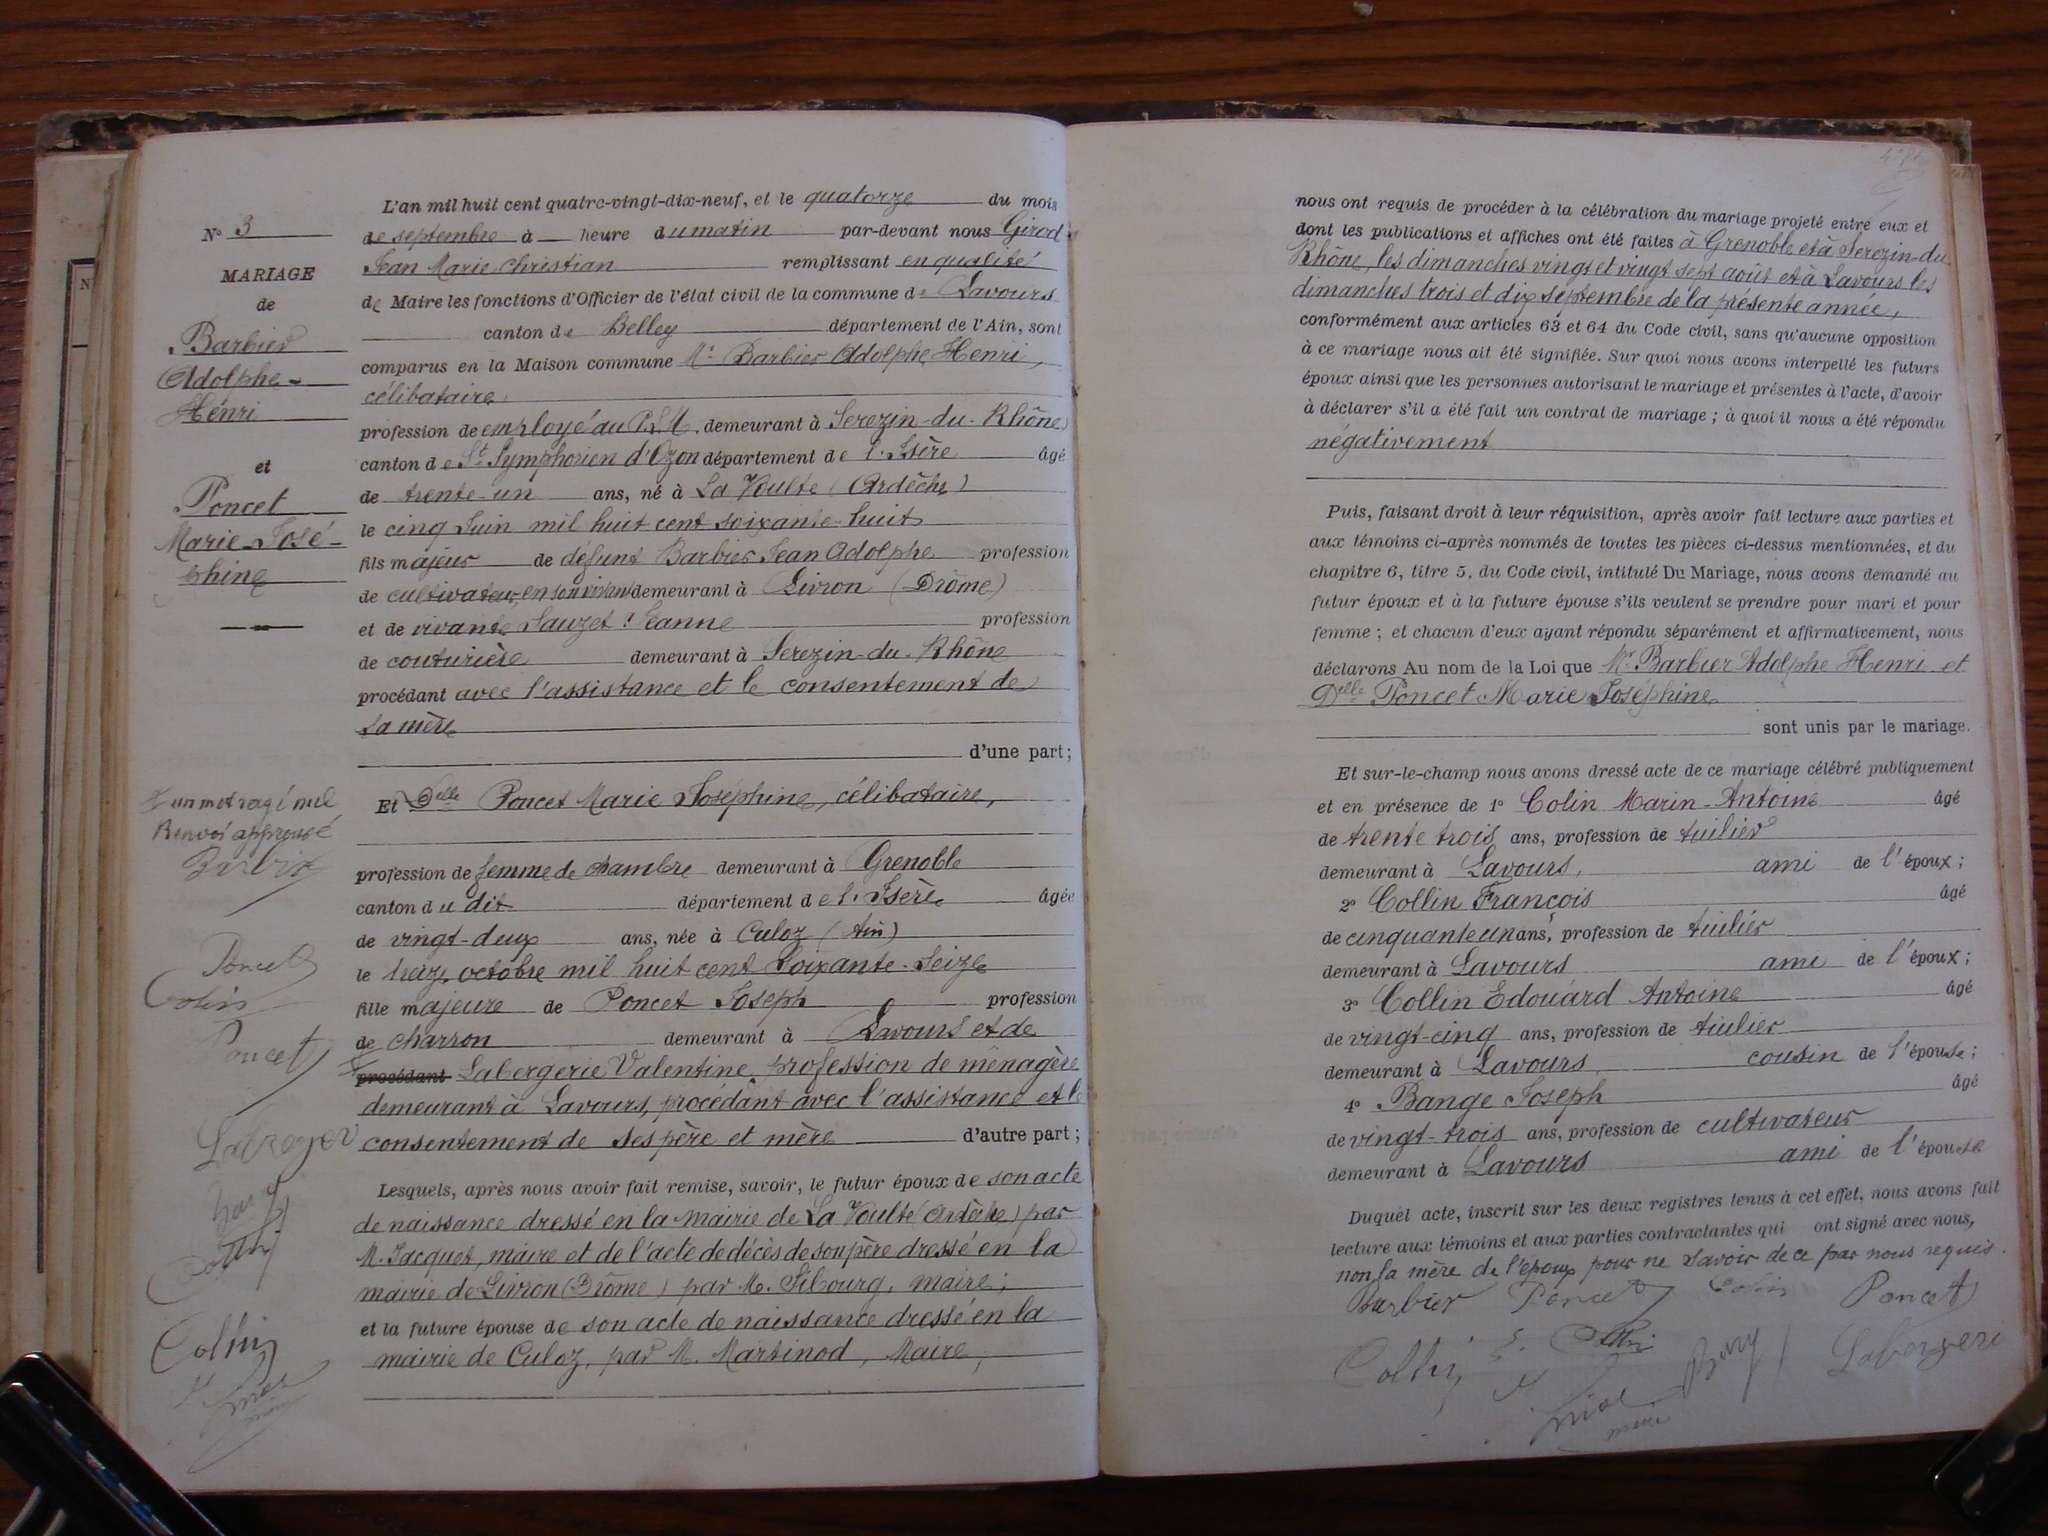 N° 3
MARIAGE
de
Barbier
Adolphe-
Hénri
et
Poncet
Marie-José-
phine
L'an mil huit cent quatre-vingt-dix-neuf, et le quatorze du mois
de septembre à heure du matin par-devant nous Girod
Jean Marie Christian remplissant en qualité
de Maire les fonctions d'Officier de l'état civil de la commune de Lavours
canton de Belley département de l'Ain, sont
comparus en la Maison commune Mr Barbier Adolphe Henri,
célibataire,
profession de employé au P.L.M. demeurant à Serezin-du-Rhône
canton de St Symphorien d'Ozon département de l'Isère âgé
de trente-un ans, né à La Voulte (Ardèche)
le cinq Juin mil huit cent soixante-huit
fils majeur de défunt Barbier Jean Adolphe profession
de cultivateur, en son vivant demeurant à Livron (Drôme)
et de vivante Sauzet Jeanne profession
de couturière demeurant à Serezin-du-Rhône
procédant avec l'assistance et le consentement de
sa mère
d'une part;
Et Delle Poncet Marie Joséphine, célibataire,
profession de femme de chambre demeurant à Grenoble
canton du dit département de l'Isère âgée
de vingt-deux ans, née à Culoz (Ain)
le treize octobre mil huit cent soixante-seize
fille majeure de Poncet Joseph profession
de charron demeurant à Lavours et de
procédant Labergerie Valentine, profession de ménagère
demeurant à Lavours, procédant avec l'assistance et le
consentement de ses père et mère d'autre part;
Lesquels, après nous avoir fait remise, savoir, le futur époux de son acte
de naissance dressé en la mairie de La Voulte (Ardèche) par
M. Jacquet, maire et de l'acte de décès de son père dressé en la
mairie de Livron (Drôme) par M. Sibourg, maire;
et la future épouse de son acte de naissance dressé en la
mairie de Culoz, par M. Martinod, Maire,
un mot rayé nul
Renvoi approuvé
Barbier
Poncet
Colin
Poncet
Collin
Collin
nous ont requis de procéder à la célébration du mariage projeté entre eux et
dont les publications et affiches ont été faites à Grenoble et à Serezin-du-
Rhône, les dimanches vingt et vingt sept août et à Lavours les
dimanches trois et dix septembre de la présente année,
conformément aux articles 63 et 64 du Code civil, sans qu'aucune opposition
à ce mariage nous ait été signifiée. Sur quoi nous avons interpellé les futurs
époux ainsi que les personnes autorisant le mariage et présentes à l'acte, d'avoir
à déclarer s'il a été fait un contrat de mariage; à quoi il nous a été répondu
négativement
Puis, faisant droit à leur réquisition, après avoir fait lecture aux parties et
aux témoins ci-après nommés de toutes les pièces ci-dessus mentionnées, et du
chapitre 6, titre 5, du Code civil, intitulé Du Mariage, nous avons demandé au
futur époux et à la future épouse s'ils veulent se prendre pour mari et pour
femme; et chacun d'eux ayant répondu séparément et affirmativement, nous
déclarons Au nom de la Loi que Mr Barbier Adolphe Henri et
Delle Poncet Marie Joséphine
sont unis par le mariage.
Et sur-le-champ nous avons dressé acte de ce mariage célébré publiquement
et en présence de 1° Colin Marin-Antoine âgé
de trente trois ans, profession de tuilier
demeurant à Lavours, ami de l'époux;
2° Collin François âgé
de cinquante un ans, profession de tuilier
demeurant à Lavours ami de l'époux;
3° Collin Edouard Antoine âgé
de vingt-cinq ans, profession de tuilier
demeurant à Lavours cousin de l'épouse;
4° Bange Joseph âgé
de vingt-trois ans, profession de cultivateur
demeurant à Lavours ami de l'épouse
Duquel acte, inscrit sur les deux registres tenus à cet effet, nous avons fait
lecture aux témoins et aux parties contractantes qui ont signé avec nous,
non la mère de l'époux pour ne savoir de ce par nous requis.
Barbier Poncet Colin Poncet
Collin E. Collin Labergerie